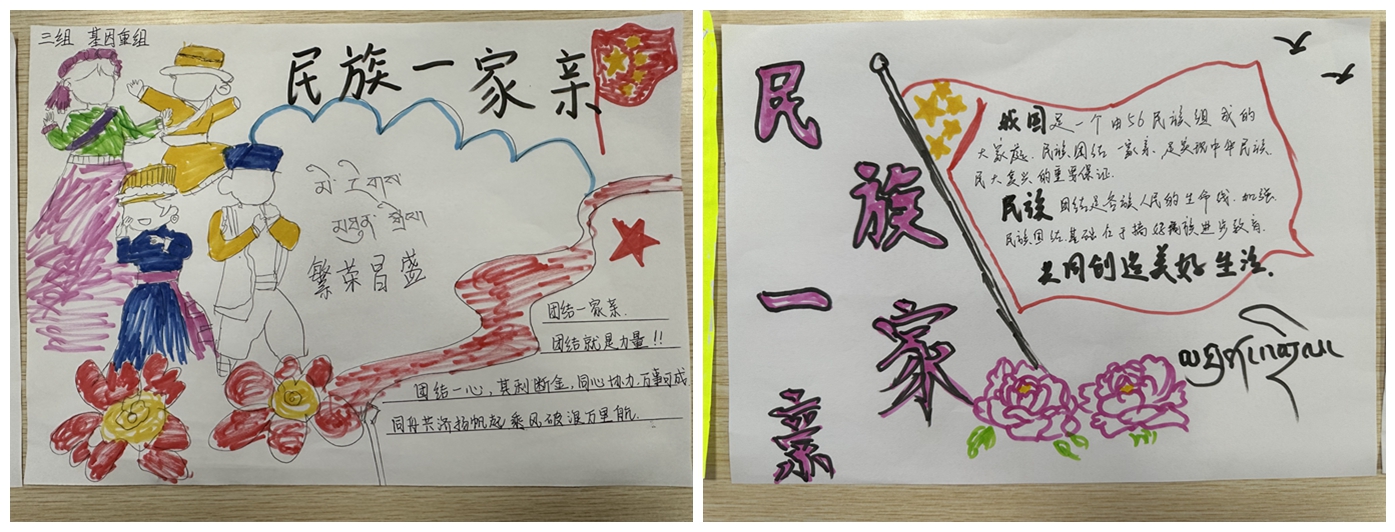 三组 基因重组
民族一家亲
繁荣昌盛
团结一家亲.
团结就是力量!!
团结一心,其利断金,同心协力,万事可成
同舟共济扬帆起乘风破浪万里航.
民族一家亲
我国是一个由56民族组成的
大家庭.民族团结一家亲.是实现中华民族.
民大复兴的重要保证.
民族团结是各族人民的生命线.加强.
民族团结.基础在于搞好民族进步教育.
共同创造美好生活.